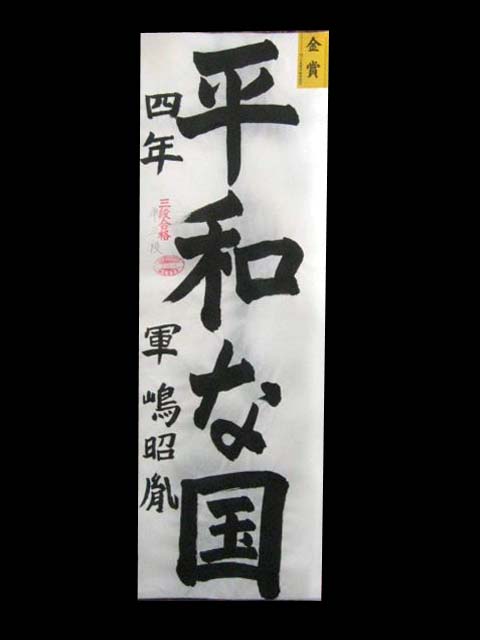 金賞
平和な国
四年
三段合格
軍嶋昭胤